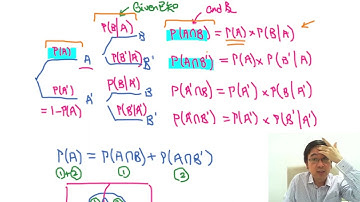 Given
and
P(A)
P(A') = 1-P(A)
A
A'
P(B|A)
P(B'|A)
B
B'
B
B'
P(A∩B) = P(A) × P(B|A)
P(A∩B') = P(A) × P(B'|A)
P(A'∩B) = P(A') × P(B|A')
P(A'∩B') = P(A') × P(B'|A')
P(A) = P(A∩B) + P(A∩B')
①+② ① ②